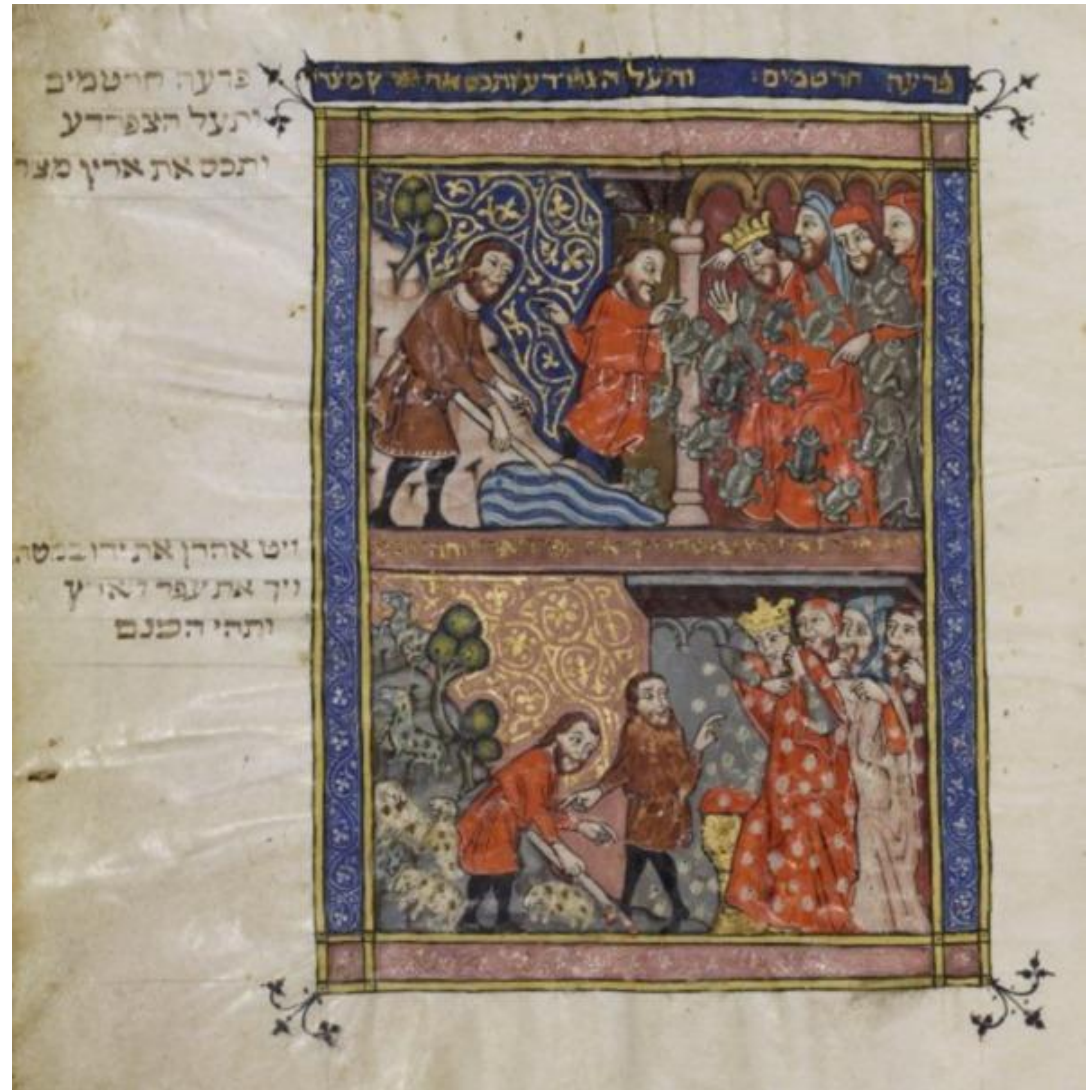 פרעה חרטמים: ותעל הצפרדע ותכס את ארץ מצר
פרעה חרטמים
ותעל הצפרדע
ותכס את ארץ מצר
ויט אהרן את ידו במטה
ויך את עפר הארץ
ותהי הכנם